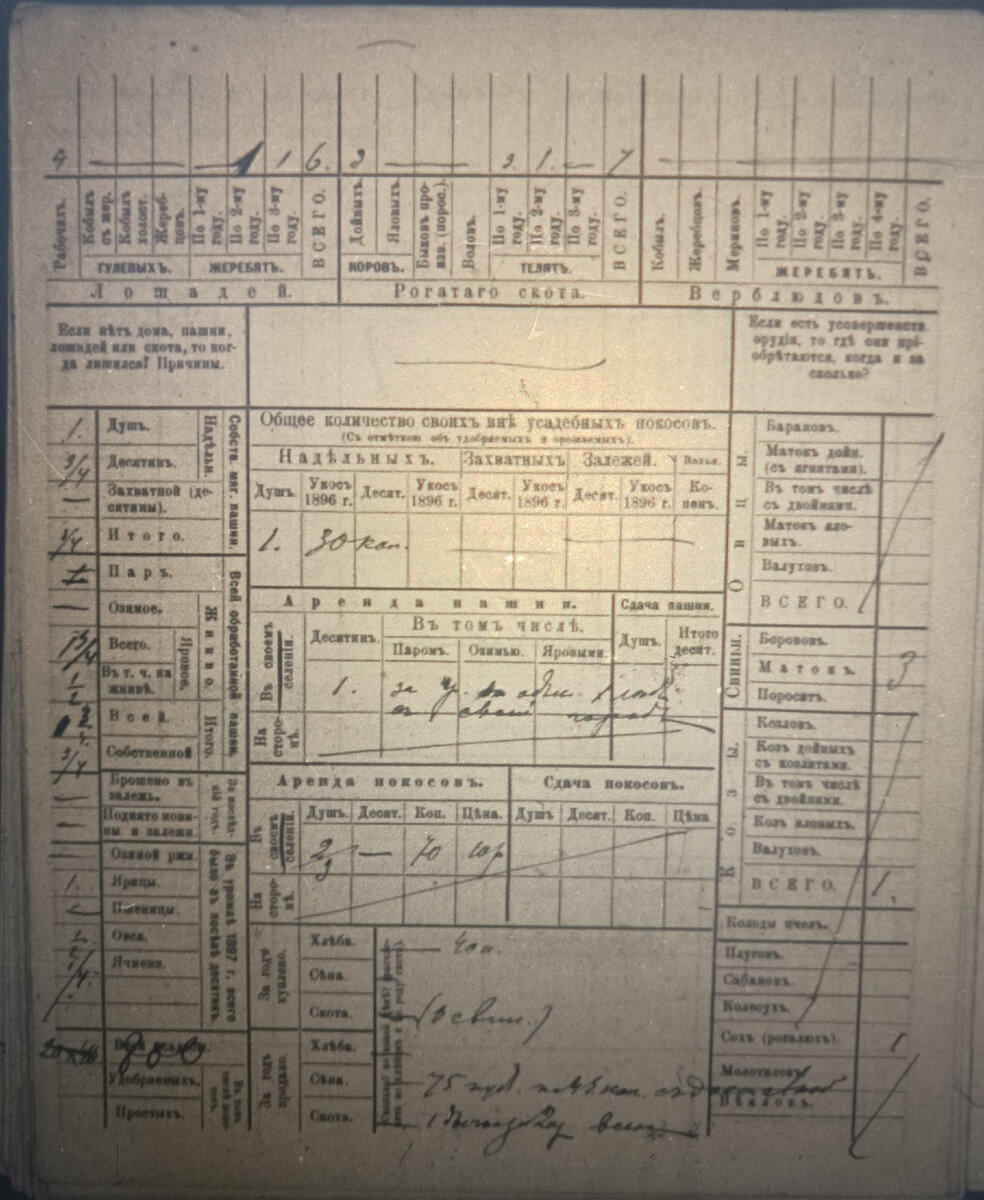 4 1 6. 3 3. 1. 7
Рабочихъ. Кобылъ съ жер. Кобылъ холост. Жереб-цовъ. По 1-му году. По 2-му году. По 3-му году. ВСЕГО. Дойныхъ. Яловыхъ. Быковъ про-изв. (пороз.). Воловъ. По 1-му году. По 2-му году. По 3-му году. ВСЕГО. Кобылъ. Жеребцовъ. Мериновъ. По 1-му году. По 2-му году. По 3-му году. По 4-му году. ВСЕГО.
ГУЛЕВЫХЪ. ЖЕРЕБЯТЪ. КОРОВЪ. ТЕЛЯТЪ. ЖЕРЕБЯТЪ.
Лошадей. Рогатаго скота. Верблюдовъ.
Если нѣтъ дома, пашни,
лошадей или скота, то ког-
да лишился? Причины.
Если есть усовершенств.
орудія, то гдѣ они прі-
обрѣтаются, когда и за
сколько?
Собств. миг. пашни.
Надѣльн.
1. Душъ.
3/4 Десятинъ.
— Захватной (де-
сятины).
3/4 Итого.
Всей обработанной пашни.
Паръ.
Живо.
— Озимое.
Яровое.
Всего.
1/2 Въ т. ч. на
жнивѣ.
Итого.
Всей.
3/4 Собственной
За послѣд-
ній годъ.
— Брошено въ
залежь.
— Поднято нови-
ны и залежи.
Въ урожаѣ 1897 г. всего
было въ посѣвѣ десятинъ.
— Озимой ржи.
1. Ярицы.
Пшеницы.
Овса.
Ячменя.
800
Удобряемыхъ.
Простыхъ.
Общее количество своихъ внѣ усадебныхъ покосовъ.
(Съ отмѣткою объ удобряемыхъ и орошаемыхъ).
Надѣльныхъ. Захватныхъ Залежей.
Душъ. Укосъ 1896 г. Десят. Укосъ 1896 г. Десят. Укосъ 1896 г. Десят. Укосъ 1896 г. Ко-пенъ.
1. 30 коп.
Аренда пашни. Сдача пашни.
Десятинъ. Въ томъ числѣ. Душъ. Итого десят.
Паромъ. Озимью. Яровыми.
Въ своемъ
селеніи
1. за
На
сторо-
нѣ.
Аренда покосовъ. Сдача покосовъ.
Душъ. Десят. Коп. Цѣна. Душъ Десят. Коп. Цѣна
Въ
своемъ
селеніи
2 — 70 10р
На
сторо-
нѣ.
За годъ
куплено.
Хлѣба. 40 п.
Сѣна.
Скота. (3 свин.)
За годъ
продано.
Хлѣба.
Сѣна. 75 пуд. по 45 коп.
Скота. 1
Овцы.
Барановъ.
Матокъ дойн.
(съ ягнятами).
Въ томъ числѣ
съ двойнями.
Матокъ яло-
выхъ.
Валуховъ.
ВСЕГО.
Свиньи.
Борововъ.
Матокъ. 3
Поросятъ.
Козы.
Козловъ.
Козъ дойныхъ
съ козлятами.
Въ томъ числѣ
съ двойнями.
Козъ яловыхъ.
Валуховъ.
ВСЕГО. 1.
Колоды пчел.
Плуговъ.
Сабановъ.
Колесухъ.
Сохъ (рогалюхъ). 1
Молотилокъ
Вѣялокъ.